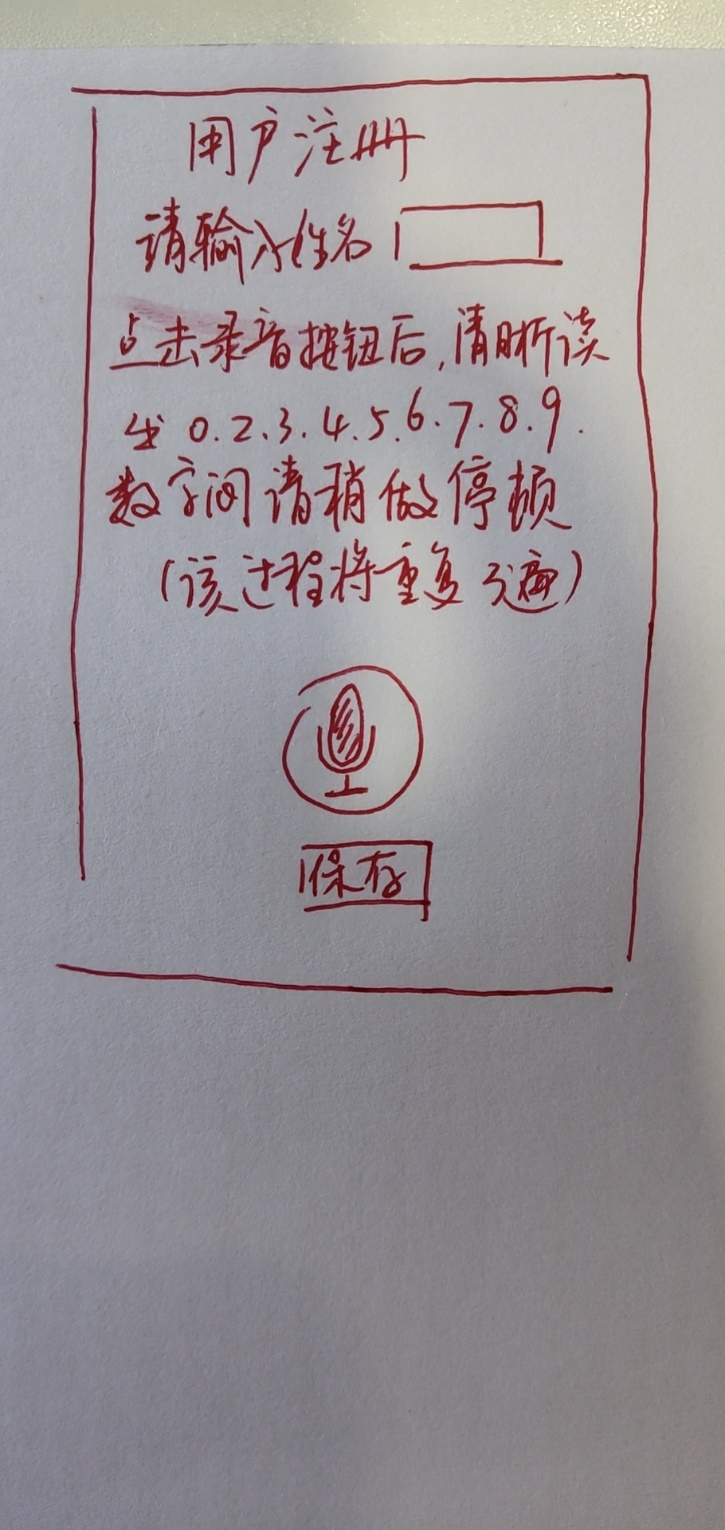 用户注册
请输入姓名
点击录音按钮后,清晰读
出 0.2.3.4.5.6.7.8.9.
数字间请稍做停顿
(该过程将重复3遍)
保存